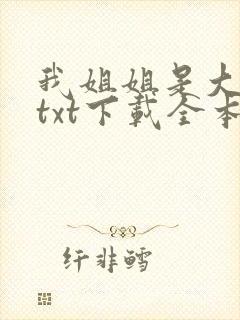 我姐姐是大
txt下载全本
纤非鳕